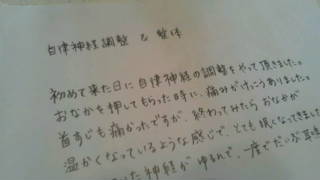 自律神経調整 & 整体
初めて来た日に自律神経の調整をやって頂きました。
おなかを押してもらった時に、痛みがけっこうありました。
首すじも痛かったですが、終わってみたらおなかが
温かくなっているような感じで、とても眠くなってきました
神経がゆるんで、一度でだいぶ